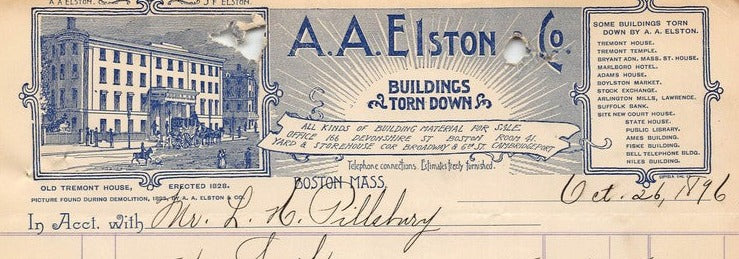 A A ELSTON.
J F ELSTON.
A. A. ELSTON & Co.
BUILDINGS
TORN DOWN
ALL KINDS OF BUILDING MATERIAL FOR SALE.
OFFICE 166 DEVONSHIRE ST BOSTON ROOM 41.
YARD & STOREHOUSE COR BROADWAY & 6TH ST. CAMBRIDGEPORT
Telephone connections. Estimates freely furnished.
SOME BUILDINGS TORN
DOWN BY A. A. ELSTON.
TREMONT HOUSE.
TREMONT TEMPLE.
BRYANT ADN. MASS. ST. HOUSE.
MARLBORO HOTEL.
ADAMS HOUSE.
BOYLSTON MARKET.
STOCK EXCHANGE.
ARLINGTON MILLS, LAWRENCE.
SUFFOLK BANK.
SITE NEW COURT HOUSE.
STATE HOUSE.
PUBLIC LIBRARY.
AMES BUILDING.
FISKE BUILDING.
BELL TELEPHONE BLDG.
NILES BUILDING.
OLD TREMONT HOUSE, ERECTED 1828.
PICTURE FOUND DURING DEMOLITION, 1895, BY A. A. ELSTON & CO.
BOSTON MASS. Oct. 26, 1896
In Acct. with Mr. L. H. Pillsbury